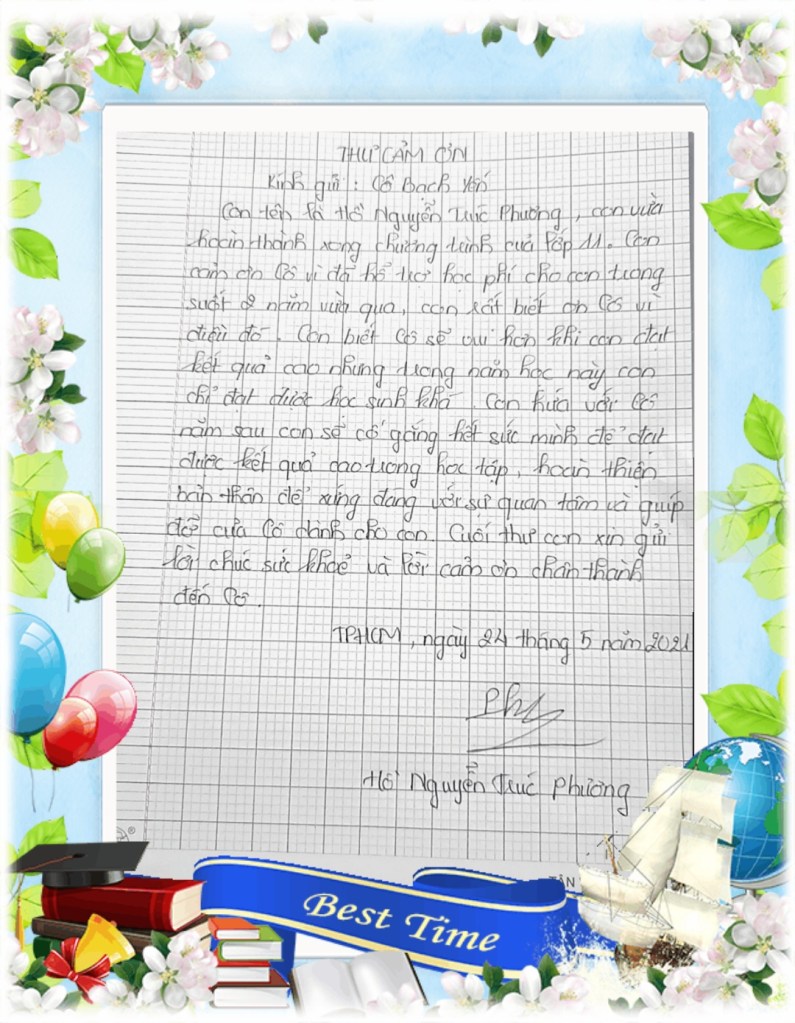 THƯ CẢM ƠN
Kính gửi : Cô Bạch Yến
Con tên là Hồ Nguyễn Trúc Phương, con vừa
hoàn thành xong chương trình của lớp 11. Con
cảm ơn Cô vì đã hổ trợ học phí cho con trong
suốt 2 năm vừa qua, con rất biết ơn Cô vì
điều đó. Con biết Cô sẽ vui hơn khi con đạt
kết quả cao nhưng trong năm học này con
chỉ đạt được học sinh khá. Con hứa với Cô
năm sau con sẽ cố gắng hết sức mình để đạt
được kết quả cao trong học tập, hoàn thiện
bản thân để xứng đáng với sự quan tâm và giúp
đỡ của Cô dành cho con. Cuối thư con xin gửi
lời chúc sức khoẻ và lời cảm ơn chân thành
đến Cô.
TPHCM, ngày 24 tháng 5 năm 2021
Hồ Nguyễn Trúc Phương
TÂN
Best Time